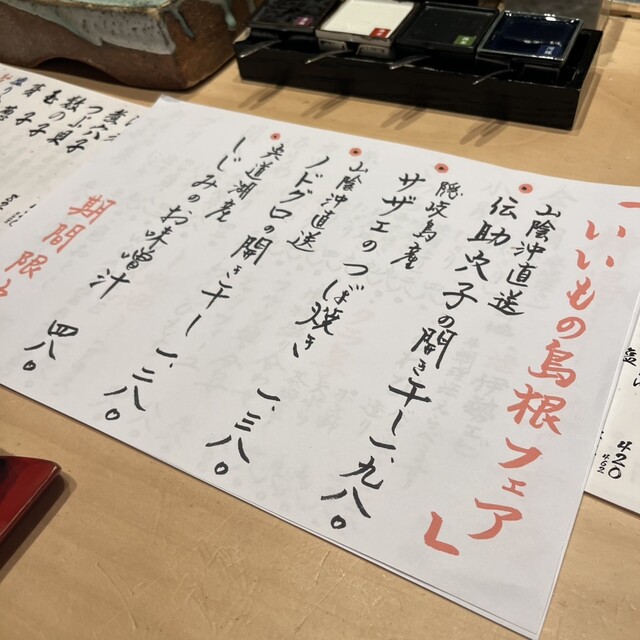 「いいもの島根フェア」
・山陰沖直送
伝助穴子の開き干し 一、九八〇
・隠岐島産
サザエのつぼ焼き 一、三八〇
・山陰沖直送
ノドグロの開き干し 一、二八〇
・宍道湖産
しじみのお味噌汁 四八〇
期間限
つぶ貝
数の子
420